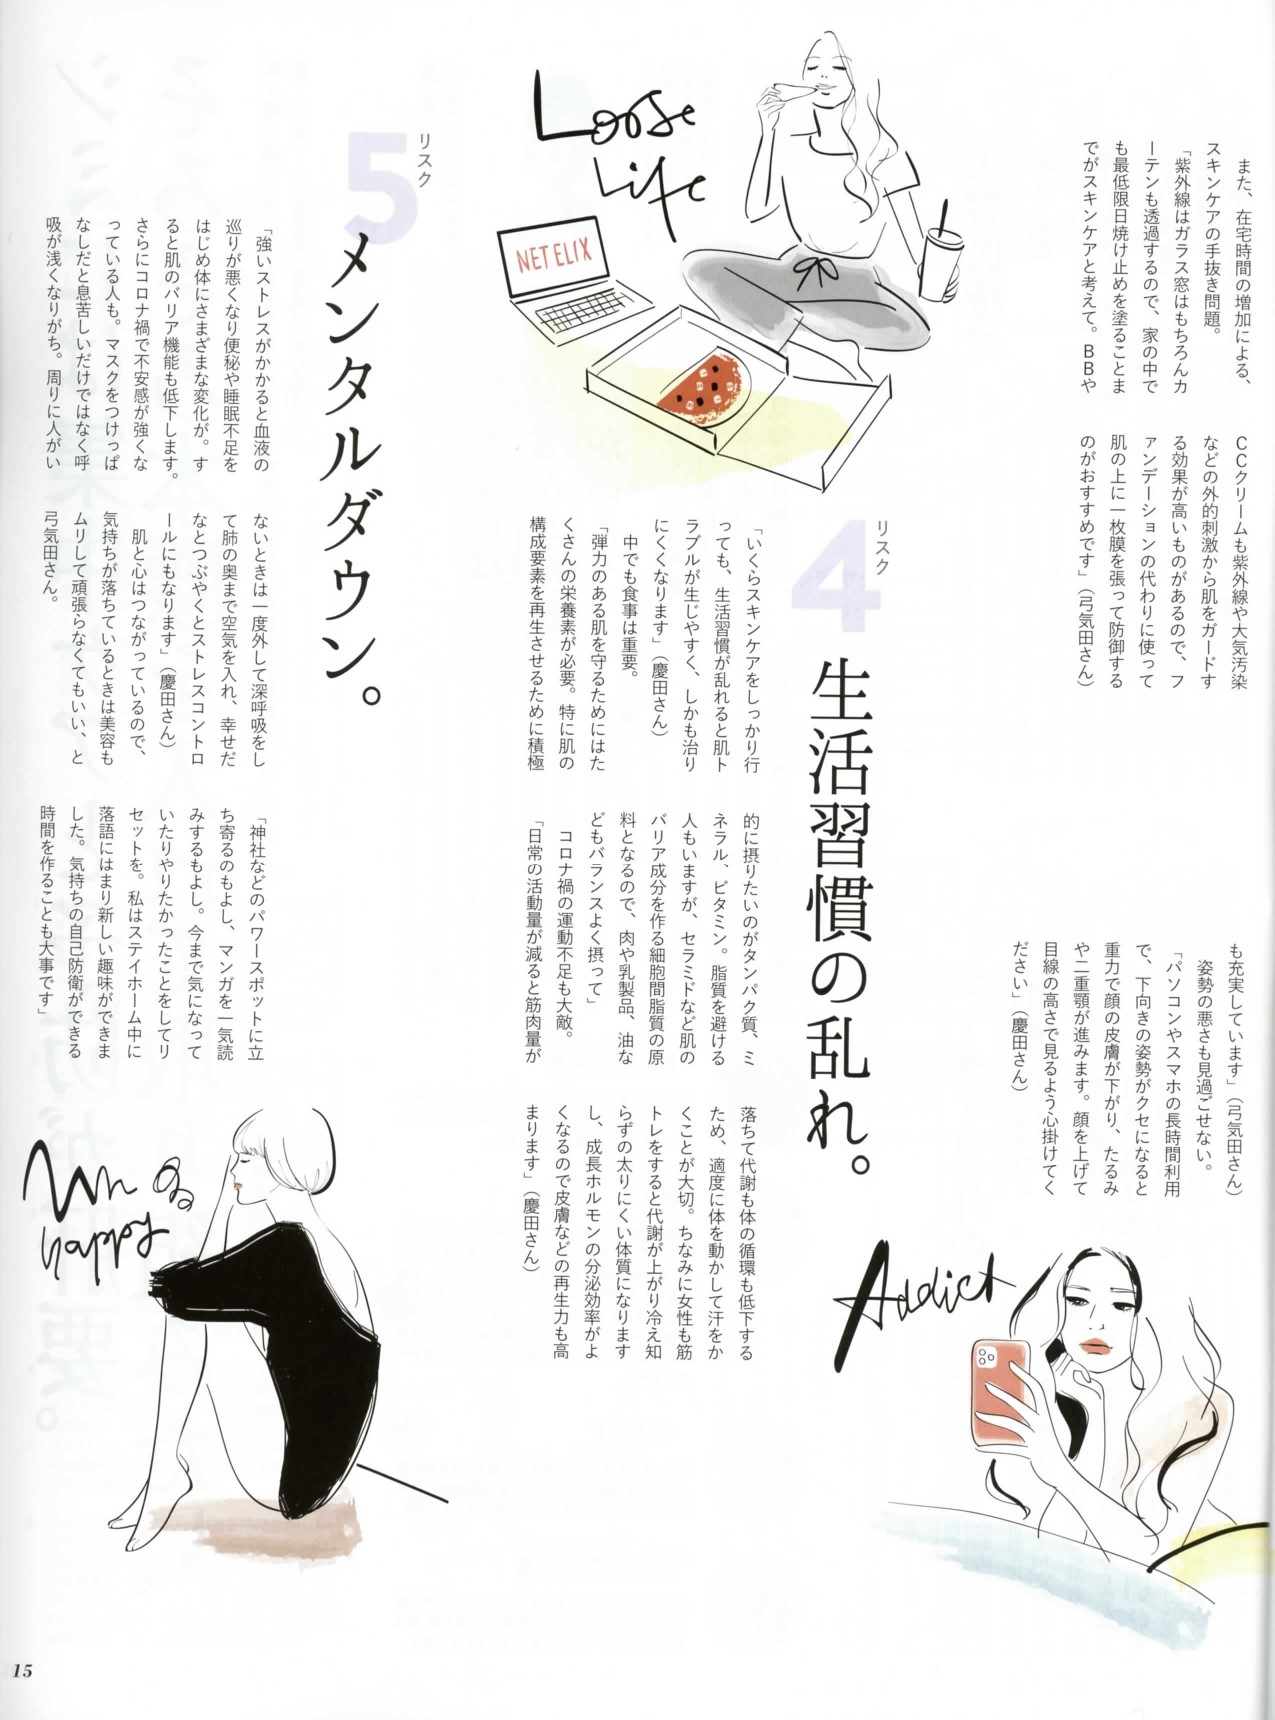 また、在宅時間の増加による、
スキンケアの手抜き問題。
「紫外線はガラス窓はもちろんカ
ーテンも透過するので、家の中で
も最低限日焼け止めを塗ることま
でがスキンケアと考えて。BBや
CCクリームも紫外線や大気汚染
などの外的刺激から肌をガードす
る効果が高いものがあるので、フ
ァンデーションの代わりに使って
肌の上に一枚膜を張って防御する
のがおすすめです」（弓気田さん）
も充実しています」（弓気田さん）
姿勢の悪さも見過ごせない。
「パソコンやスマホの長時間利用
で、下向きの姿勢がクセになると
重力で顔の皮膚が下がり、たるみ
や二重顎が進みます。顔を上げて
目線の高さで見るよう心掛けてく
ださい」（慶田さん）
Addict
Loose
Life
NETELIX
リスク
4
生活習慣の乱れ。
「いくらスキンケアをしっかり行
っても、生活習慣が乱れると肌ト
ラブルが生じやすく、しかも治り
にくくなります」（慶田さん）
中でも食事は重要。
「弾力のある肌を守るためにはた
くさんの栄養素が必要。特に肌の
構成要素を再生させるために積極
的に摂りたいのがタンパク質、ミ
ネラル、ビタミン。脂質を避ける
人もいますが、セラミドなど肌の
バリア成分を作る細胞間脂質の原
料となるので、肉や乳製品、油な
どもバランスよく摂って」
コロナ禍の運動不足も大敵。
「日常の活動量が減ると筋肉量が
落ちて代謝も体の循環も低下する
ため、適度に体を動かして汗をか
くことが大切。ちなみに女性も筋
トレをすると代謝が上がり冷え知
らずの太りにくい体質になります
し、成長ホルモンの分泌効率がよ
くなるので皮膚などの再生力も高
まります」（慶田さん）
リスク
5
メンタルダウン。
「強いストレスがかかると血液の
巡りが悪くなり便秘や睡眠不足を
はじめ体にさまざまな変化が。す
ると肌のバリア機能も低下します。
さらにコロナ禍で不安感が強くな
っている人も。マスクをつけっぱ
なしだと息苦しいだけではなく呼
吸が浅くなりがち。周りに人がい
ないときは一度外して深呼吸をし
て肺の奥まで空気を入れ、幸せだ
なとつぶやくとストレスコントロ
ールにもなります」（慶田さん）
肌と心はつながっているので、
気持ちが落ちているときは美容も
ムリして頑張らなくてもいい、と
弓気田さん。
「神社などのパワースポットに立
ち寄るのもよし、マンガを一気読
みするもよし。今まで気になって
いたりやりたかったことをしてリ
セットを。私はステイホーム中に
落語にはまり新しい趣味ができま
した。気持ちの自己防衛ができる
時間を作ることも大事です」
Un
happy
15